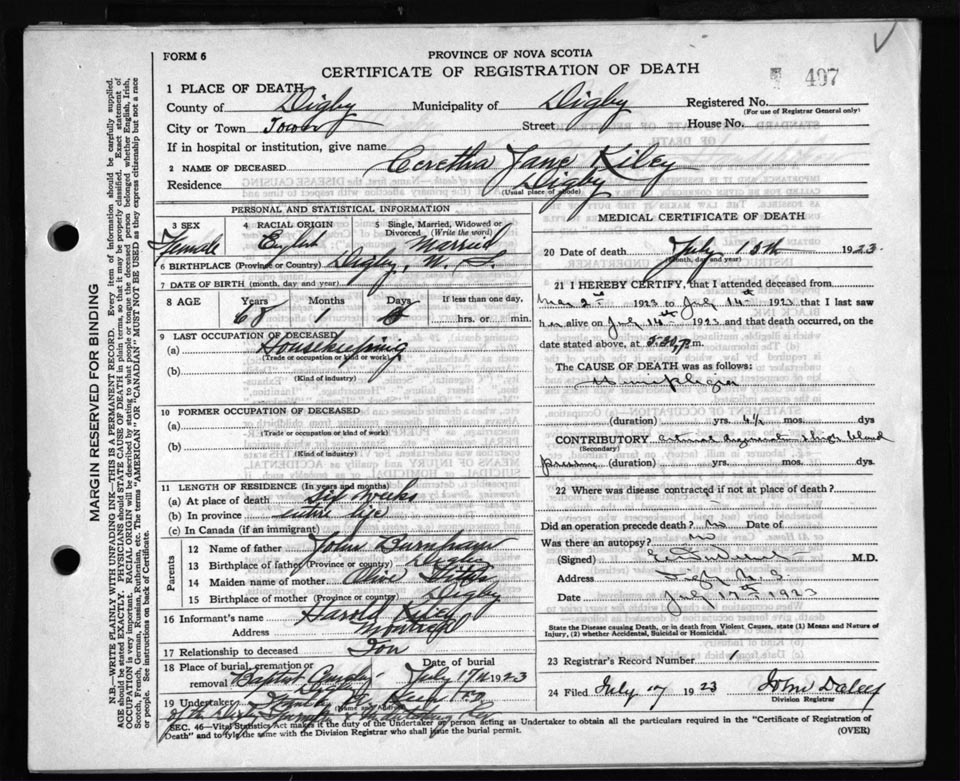 FORM 6
PROVINCE OF NOVA SCOTIA
CERTIFICATE OF REGISTRATION OF DEATH
407
1 PLACE OF DEATH
County of Digby Municipality of Digby Registered No.
(For use of Registrar General only)
City or Town Town Street House No.
If in hospital or institution, give name
2 NAME OF DECEASED Ceretha Jane Kiley
Residence Digby
(Usual place of abode)
PERSONAL AND STATISTICAL INFORMATION
3 SEX Female
4 RACIAL ORIGIN English
5 Single, Married, Widowed or Divorced (Write the word) Married
6 BIRTHPLACE (Province or Country) Digby, N. S.
7 DATE OF BIRTH (month, day and year)
8 AGE Years Months Days If less than one day,
68 1 hrs. or min.
9 LAST OCCUPATION OF DECEASED
(a) Housekeeping
(Trade or occupation or kind of work)
(b)
(Kind of industry)
10 FORMER OCCUPATION OF DECEASED
(a)
(Trade or occupation or kind of work)
(b)
(Kind of industry)
11 LENGTH OF RESIDENCE (In years and months)
(a) At place of death Six weeks
(b) In province entire life
(c) In Canada (if an immigrant)
Parents
12 Name of father John Burnham
13 Birthplace of father (Province or country) Digby
14 Maiden name of mother Olive
15 Birthplace of mother (Province or country) Digby
16 Informant's name Harold Kiley
Address Montreal
17 Relationship to deceased Son
18 Place of burial, cremation or removal Baptist Digby
Date of burial July 17th 1923
19 Undertaker
(Name and Address)
SEC. 46—Vital Statistics Act makes it the duty of the Undertaker or person acting as Undertaker to obtain all the particulars required in the "Certificate of Registration of
Death" and to file the same with the Division Registrar who shall issue the burial permit.
(OVER)
MEDICAL CERTIFICATE OF DEATH
20 Date of death July 15th 1923
(Month, day and year)
21 I HEREBY CERTIFY, that I attended deceased from
2nd 1923 to July 14th 1923 that I last saw
her alive on July 14th 1923 and that death occurred, on the
date stated above, at 5.30 p m.
The CAUSE OF DEATH was as follows:
Hemiplegia
(duration) yrs. mos. dys
CONTRIBUTORY high blood
(Secondary)
pressure (duration) yrs. mos. dys.
22 Where was disease contracted if not at place of death?
Did an operation precede death? no Date of
Was there an autopsy? no
(Signed) M.D.
Address Digby N. S.
Date July 17th 1923
State the Disease causing Death, or in death from Violent Causes, state (1) Means and Nature of
Injury, (2) whether Accidental, Suicidal or Homicidal.
23 Registrar's Record Number 1
24 Filed July 17 1923 John Daley
Division Registrar
MARGIN RESERVED FOR BINDING
N.B.—WRITE PLAINLY WITH UNFADING INK—THIS IS A PERMANENT RECORD. Every item of Information should be carefully supplied.
AGE should be stated EXACTLY. PHYSICIANS should STATE CAUSE OF DEATH in plain terms, so that it may be properly classified. Exact statement of
OCCUPATION is very important. RACIAL ORIGIN will be described by stating to what people or tongue the deceased person belonged whether English, Irish,
Scotch, French, German, Russian, Ruthenian, etc. The terms "AMERICAN" or "CANADIAN" MUST NOT BE USED as they express citizenship but not a race
or people. See instructions on back of Certificate.